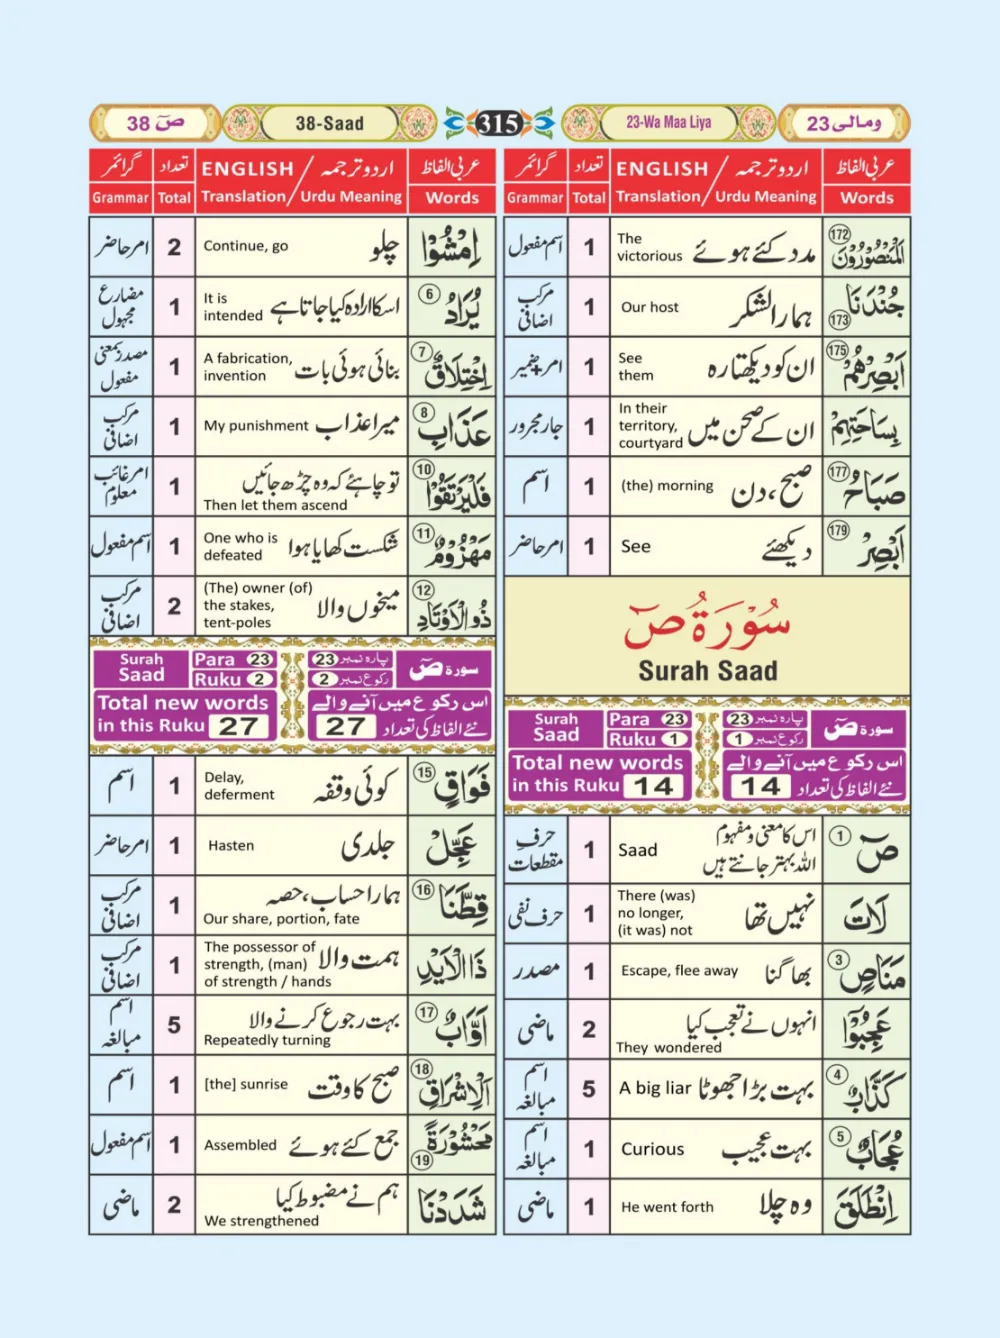 ص 38
38-Saad
315
23-Wa Maa Liya
ومالی 23
گرائمر تعداد ENGLISH / اردو ترجمہ عربی الفاظ
Grammar Total Translation / Urdu Meaning Words
اسم مفعول 1 The victorious مدد کئے ہوئے الْمَنْصُوْرُوْنَ 172
مرکب اضافی 1 Our host ہمارا لشکر جُنْدَنَا 173
امر+ضمیر 1 See them ان کو دیکھتا رہ اَبْصِرْهُمْ 175
جار مجرور 1 In their territory, courtyard ان کے صحن میں بِسَاحَتِهِمْ
اسم 1 (the) morning صبح، دن صَبَاحُ 177
امر حاضر 1 See دیکھئے اَبْصِرْ 179
سُوْرَةُ صٓ
Surah Saad
Surah Saad Para 23 Ruku 1
سورۃ صٓ پارہ نمبر 23 رکوع نمبر 1
Total new words in this Ruku 14
اس رکوع میں آنے والے نئے الفاظ کی تعداد 14
حرف مقطعات 1 Saad اس کا معنی و مفہوم اللہ بہتر جانتے ہیں صٓ 1
حرف نفی 1 There (was) no longer, (it was) not نہیں تھا لَاتَ
مصدر 1 Escape, flee away بھاگنا مَنَاصٍ 3
ماضی 2 They wondered انہوں نے تعجب کیا عَجِبُوْٓا
اسم مبالغہ 5 A big liar بہت بڑا جھوٹا كَذَّابٌ 4
اسم مبالغہ 1 Curious بہت عجیب عُجَابٌ 5
ماضی 1 He went forth وہ چلا اِنْطَلَقَ
گرائمر تعداد ENGLISH / اردو ترجمہ عربی الفاظ
Grammar Total Translation / Urdu Meaning Words
امر حاضر 2 Continue, go چلو اِمْشُوْا
مضارع مجہول 1 It is intended اسکا ارادہ کیا جاتا ہے يُرَادُ 6
مصدر بمعنی مفعول 1 A fabrication, invention بنائی ہوئی بات اِخْتِلَاقٌ 7
مرکب اضافی 1 My punishment میرا عذاب عَذَابِ 8
امر غائب معلوم 1 Then let them ascend تو چاہئے کہ وہ چڑھ جائیں فَلْيَرْتَقُوْا 10
اسم مفعول 1 One who is defeated شکست کھایا ہوا مَهْزُوْمٌ 11
مرکب اضافی 2 (The) owner (of) the stakes, tent-poles میخوں والا ذُو الْاَوْتَادِ 12
Surah Saad Para 23 Ruku 2
سورۃ صٓ پارہ نمبر 23 رکوع نمبر 2
Total new words in this Ruku 27
اس رکوع میں آنے والے نئے الفاظ کی تعداد 27
اسم 1 Delay, deferment کوئی وقفہ فَوَاقٍ 15
امر حاضر 1 Hasten جلدی عَجِّلْ
مرکب اضافی 1 Our share, portion, fate ہمارا حساب، حصہ قِطَّنَا 16
مرکب اضافی 1 The possessor of strength, (man) of strength / hands ہمت والا ذَا الْاَيْدِ
اسم مبالغہ 5 Repeatedly turning بہت رجوع کرنے والا اَوَّابٌ 17
اسم 1 [the] sunrise صبح کا وقت اَلْاِشْرَاقِ 18
اسم مفعول 1 Assembled جمع کئے ہوئے مَحْشُوْرَةً 19
ماضی 2 We strengthened ہم نے مضبوط کیا شَدَدْنَا